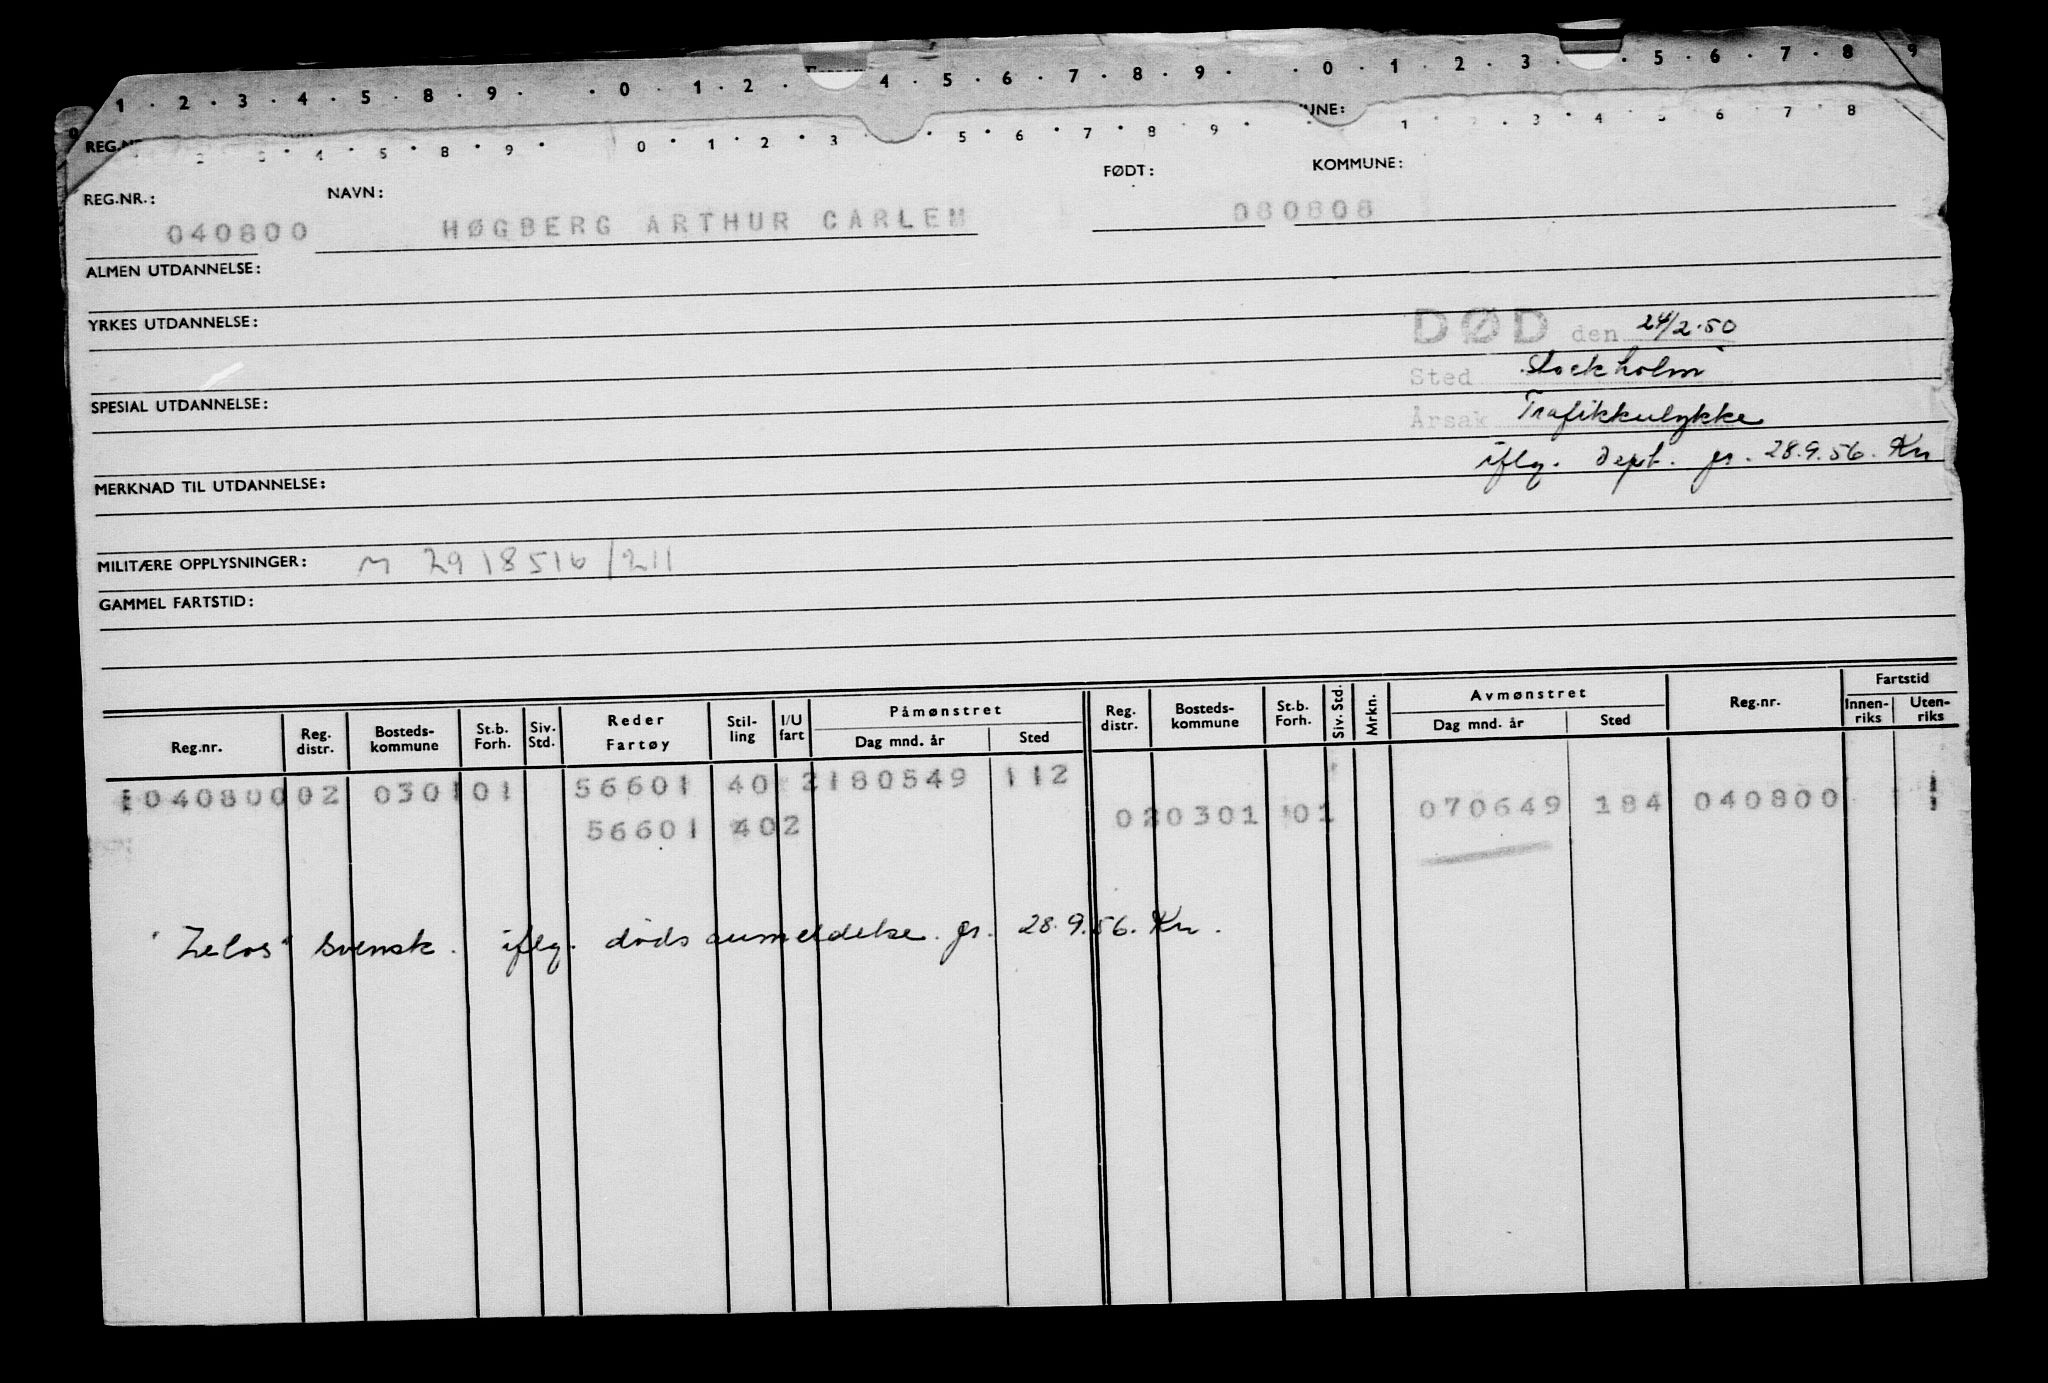 1 . 2 . 3 . 4 . 5 . 8 . 9 . . 0 . 1 . 2 . 4 . 5 . 6 . 7 . 8 . 9 . . 0 . 1 . 2 . 3 . 5 . 6 . 7 . 8 9
REG.N UNE:
2 3 . 4 . 5 . 8 . 9 . 0 . 1 . 2 . 3 . 5 . 6 . 7 . 8 . 9 . 1 3 . 4 . 5 6 7 8
REG.NR.: NAVN: FØDT: KOMMUNE:
040800 HØGBERG ARTHUR CARLEM 080808
ALMEN UTDANNELSE:
YRKES UTDANNELSE:
DØD den 24/2.50
Sted Stockholm
SPESIAL UTDANNELSE:
Årsak Trafikkulykke
iflg. dept. gr. 28.9.56. Kn
MERKNAD TIL UTDANNELSE:
MILITÆRE OPPLYSNINGER: M 2918516/211
GAMMEL FARTSTID:
Reg.nr. Reg. distr. Bosteds-kommune St.b. Forh. Siv. Std. Reder Fartøy Stil-ling I/U fart Påmønstret Dag mnd. år Sted Reg. distr. Bosteds-kommune St.b. Forh. Siv. Std. Mrkn. Avmønstret Dag mnd. år Sted Reg.nr. Fartstid Innen-riks Uten-riks
1 040800 02 0301 01 56601 40 2 180549 112
56601 40 2 02 0301 01 070649 184 040800 1
"Zelos" svensk. iflg. dødsanmeldelse. gr. 28.9.56. Kn.